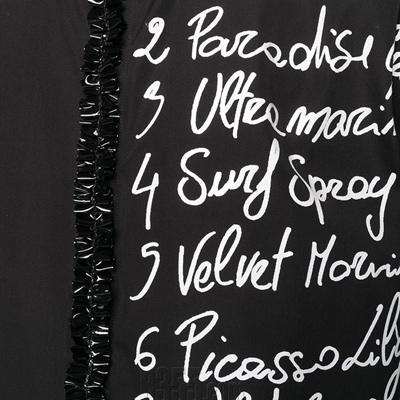 2 Paradise
3 Ultramarin
4 Surf Spray
5 Velvet Morni
6 Picasso Lily